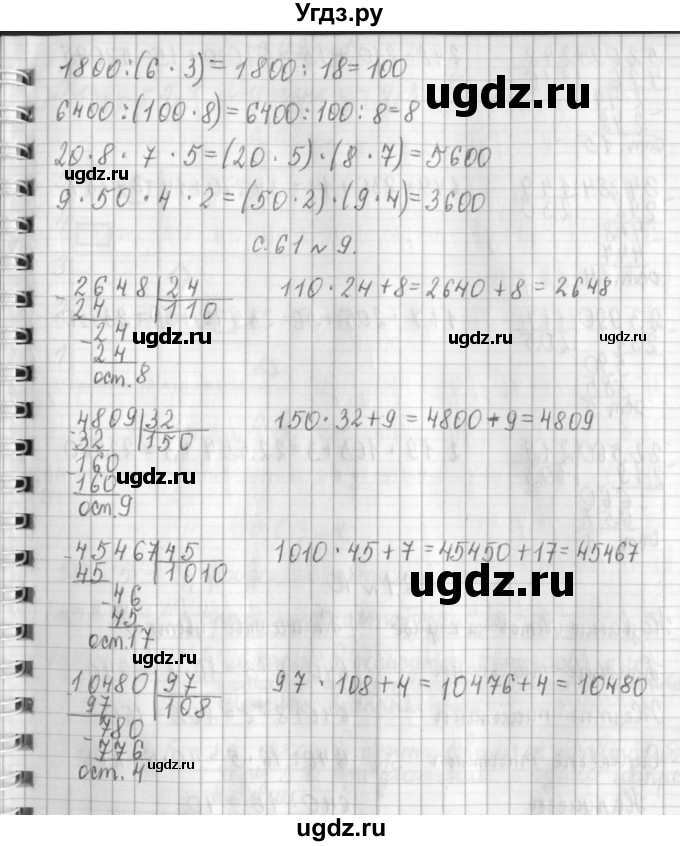 Угдз.ру
1800:(6 · 3) = 1800 : 18 = 100
ugdz.ru
6400:(100·8)=6400:100:8=8
20·8 · 7 · 5=(20 · 5)·(8 · 7)=5600
ugdz.ru
9 · 50 · 4 · 2 = (50·2)·(9·4)=3600
с. 61 № 9.
2648 24 110·24+8=2640+8 = 2648
24 110
24 ugdz.ru ugdz.ru ugdz.ru
24
ост. 8
4809 32 150·32+9 = 4800+9=4809
32 150
160 ugdz.ru
160
ост. 9
45467 45 1010·45+7=45450+17=45467
45 1010 ugdz.ru
46
45
ост. 17
ugdz.ru
10480 97 97 · 108+4 = 10476+4 = 10480
97 108
780
776 ugdz.ru
ост. 4
ugdz.ru